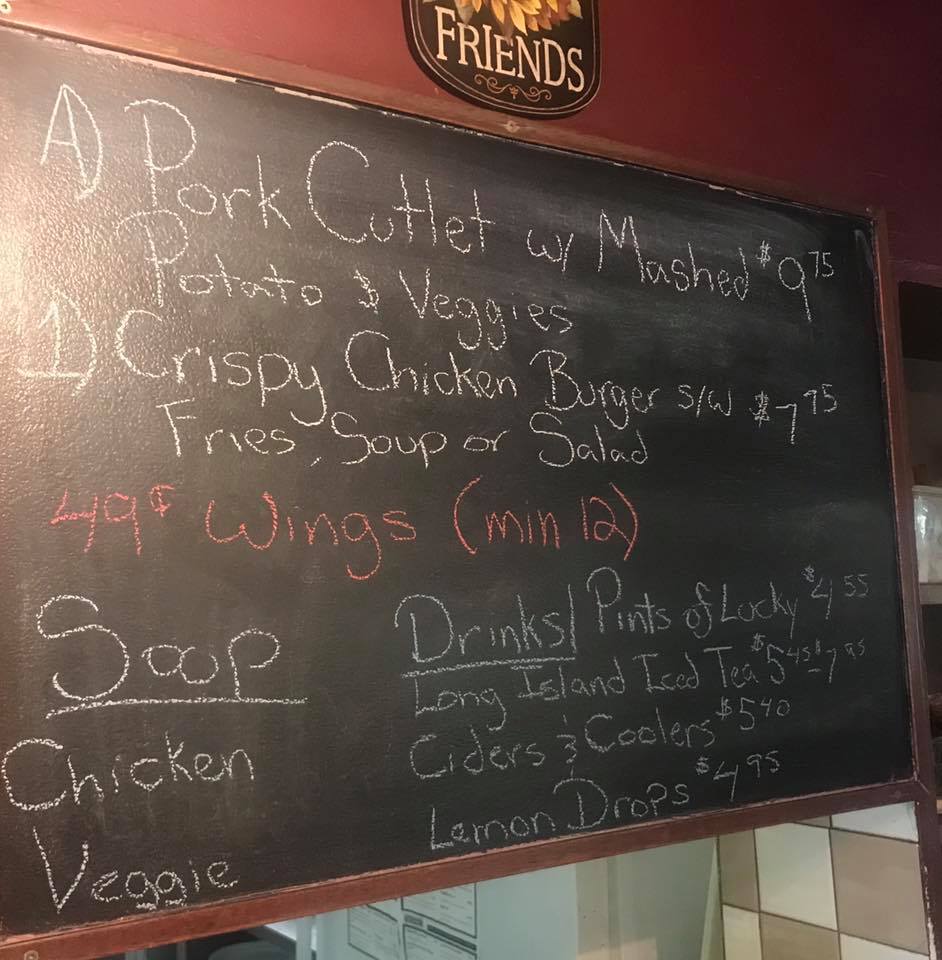 FRIENDS
A) Pork Cutlet w/ Mashed $9 75
Potato & Veggies
1) Crispy Chicken Burger s/w $7 95
Fries, Soup or Salad
49¢ Wings (min 12)
Soup
Chicken
Veggie
Drinks/ Pints of Lucky $4 55
Long Island Iced Tea $5 45 - $7 95
Ciders & Coolers $5 40
Lemon Drops $4 95